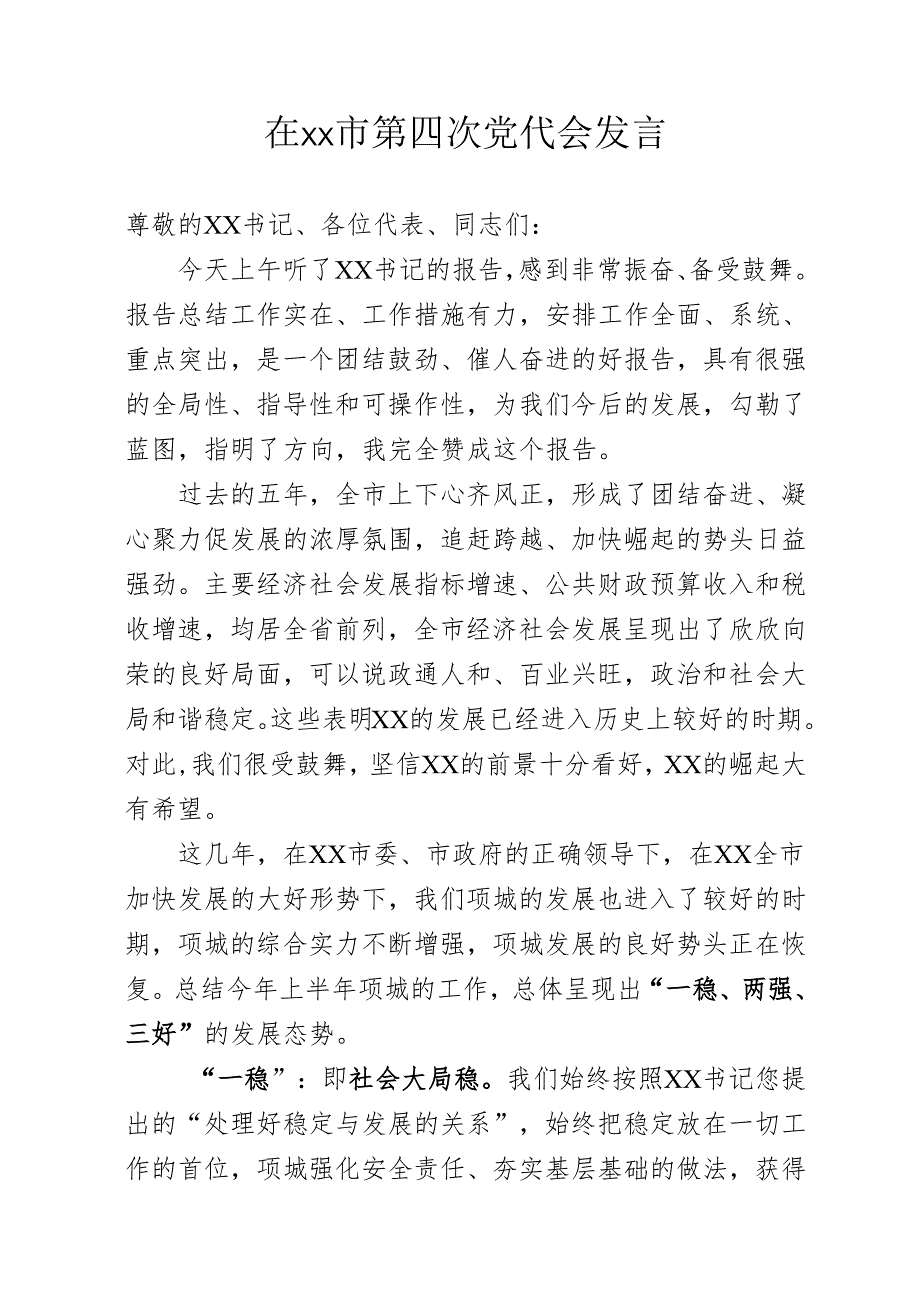 在xx市第四次党代会发言
尊敬的XX书记、各位代表、同志们：
今天上午听了XX书记的报告，感到非常振奋、备受鼓舞。
报告总结工作实在、工作措施有力，安排工作全面、系统、
重点突出，是一个团结鼓劲、催人奋进的好报告，具有很强
的全局性、指导性和可操作性，为我们今后的发展，勾勒了
蓝图，指明了方向，我完全赞成这个报告。
过去的五年，全市上下心齐风正，形成了团结奋进、凝
心聚力促发展的浓厚氛围，追赶跨越、加快崛起的势头日益
强劲。主要经济社会发展指标增速、公共财政预算收入和税
收增速，均居全省前列，全市经济社会发展呈现出了欣欣向
荣的良好局面，可以说政通人和、百业兴旺，政治和社会大
局和谐稳定。这些表明XX的发展已经进入历史上较好的时期。
对此,我们很受鼓舞，坚信XX的前景十分看好，XX的崛起大
有希望。
这几年，在XX市委、市政府的正确领导下，在XX全市
加快发展的大好形势下，我们项城的发展也进入了较好的时
期，项城的综合实力不断增强，项城发展的良好势头正在恢
复。总结今年上半年项城的工作，总体呈现出“一稳、两强、
三好”的发展态势。
“一稳”：即社会大局稳。我们始终按照XX书记您提
出的“处理好稳定与发展的关系”，始终把稳定放在一切工
作的首位，项城强化安全责任、夯实基层基础的做法，获得